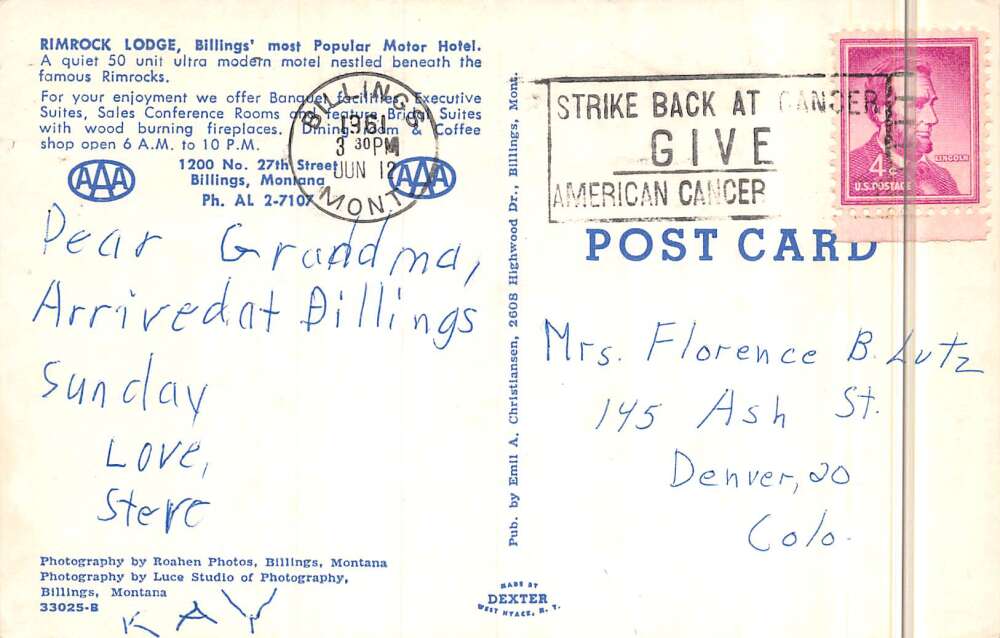 RIMROCK LODGE, Billings' most Popular Motor Hotel.
A quiet 50 unit ultra modern motel nestled beneath the
famous Rimrocks.
For your enjoyment we offer Banquet facilities, Executive
Suites, Sales Conference Rooms and feature Bridal Suites
with wood burning fireplaces. Dining room & Coffee
shop open 6 A.M. to 10 P.M.
1200 No. 27th Street
Billings, Montana
Ph. AL 2-7107
AAA
AAA
BILLINGS
1961
3 30 PM
JUN 12
MONT.
Dear Grandma,
Arrived at Billings
Sunday
Love,
Steve
Photography by Roahen Photos, Billings, Montana
Photography by Luce Studio of Photography,
Billings, Montana
33025-B
KAY
Pub. by Emil A. Christiansen, 2608 Highwood Dr., Billings, Mont.
MADE BY
DEXTER
WEST NYACK, N. Y.
STRIKE BACK AT CANCER
GIVE
AMERICAN CANCER
LINCOLN
4c
U.S. POSTAGE
POST CARD
Mrs. Florence B. Lutz
145 Ash St.
Denver, 20
Colo.